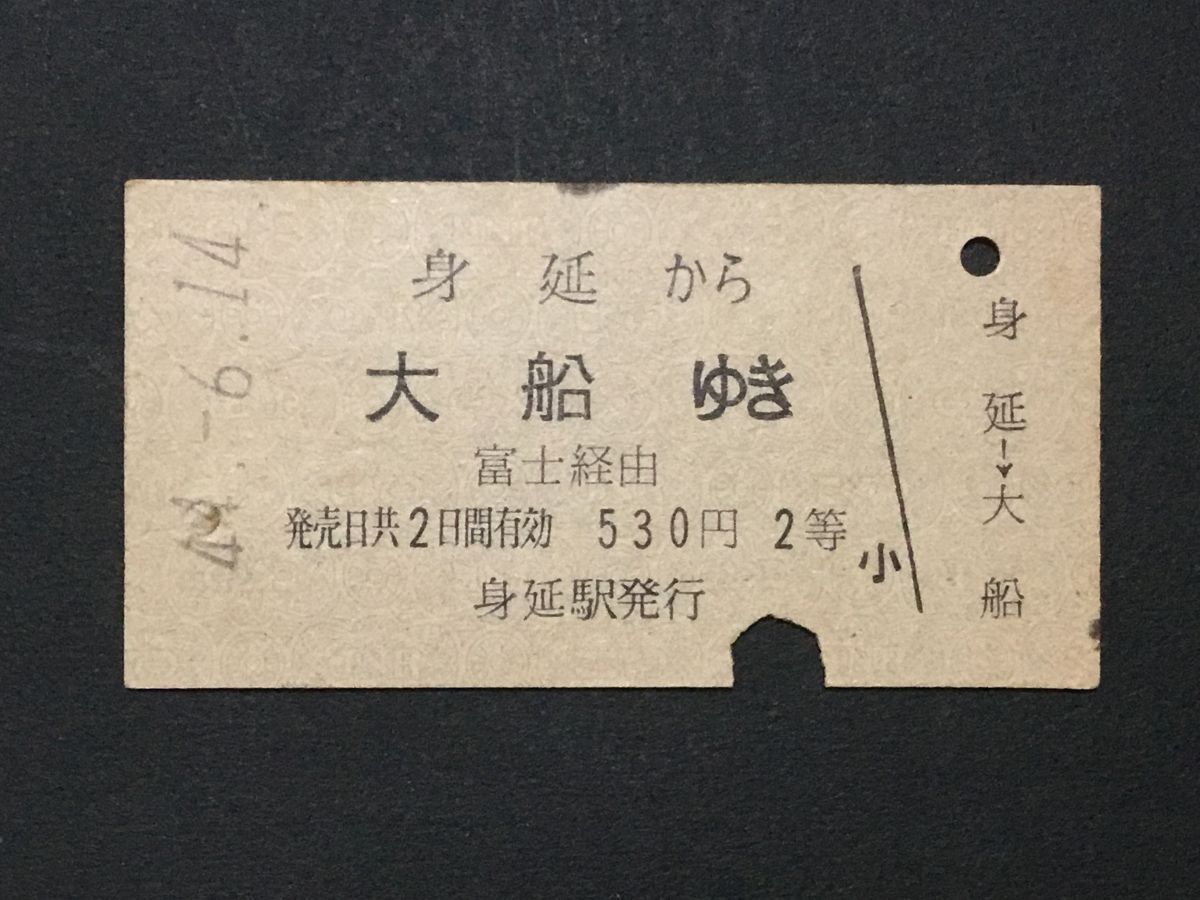 身延から
大船ゆき
富士経由
発売日共2日間有効 530円 2等
身延駅発行
小
身延→大船
-6.14